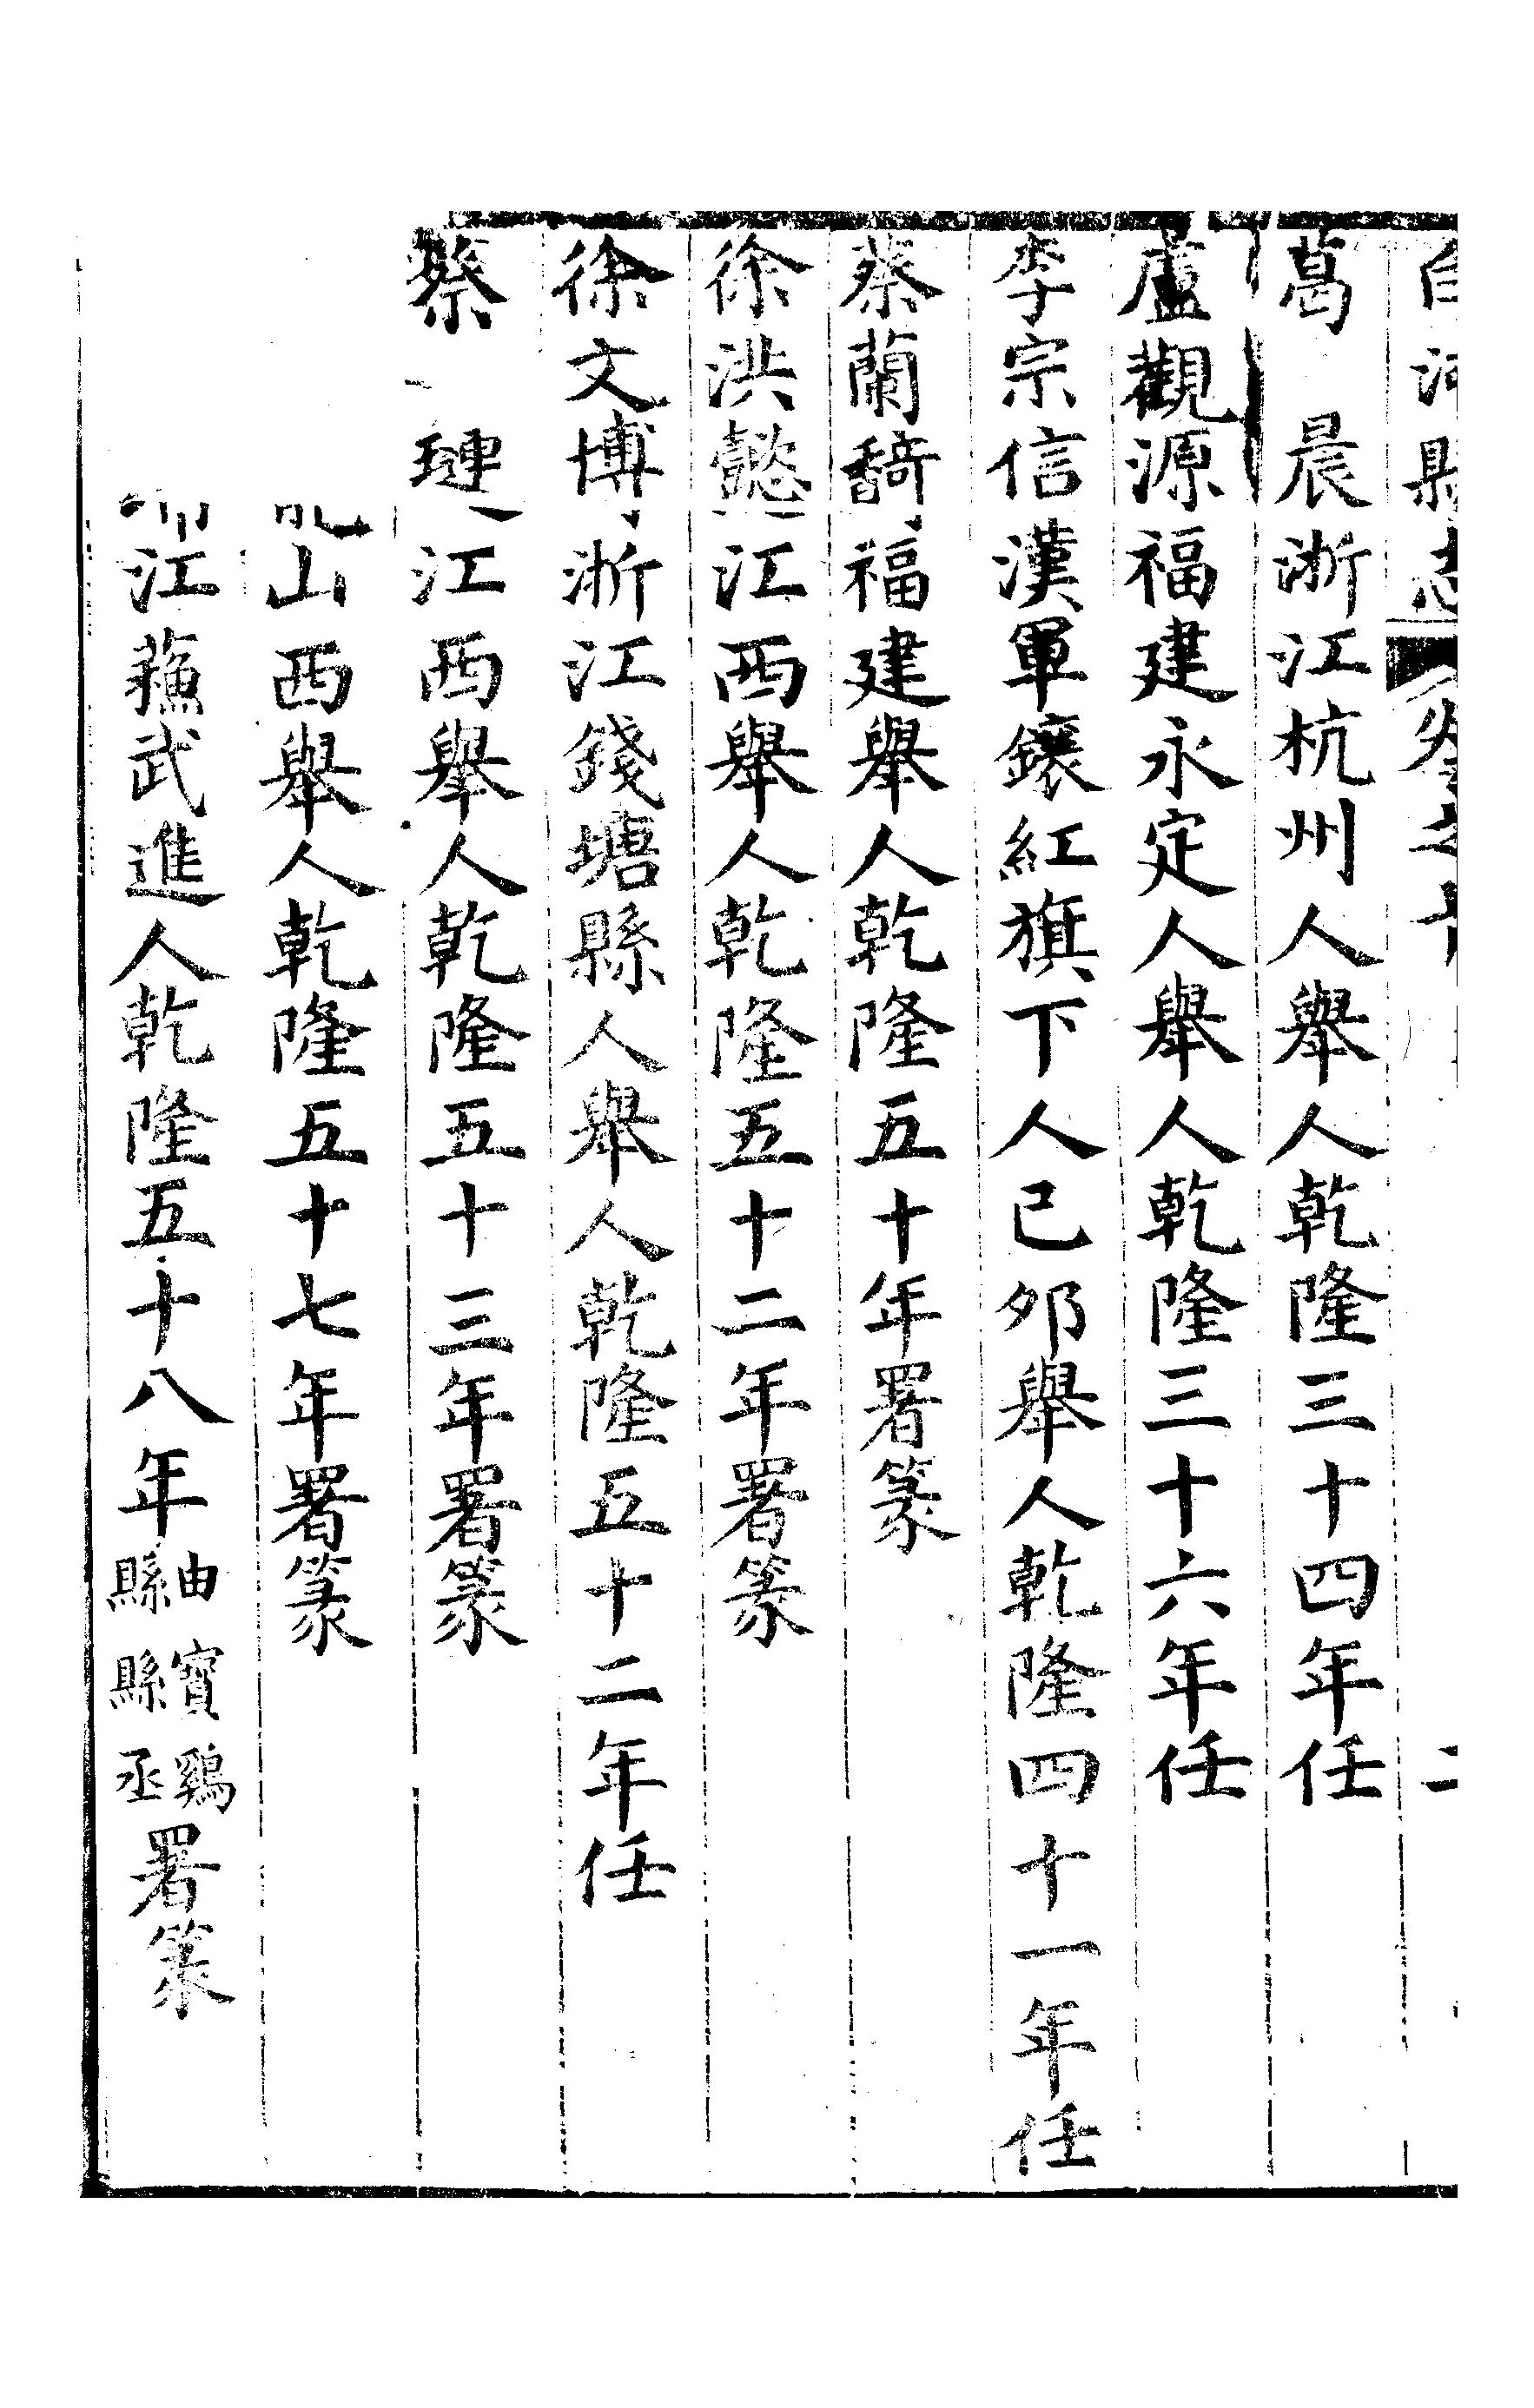 白河縣志 卷之十 二
葛晨浙江杭州人舉人乾隆三十四年任
盧觀源福建永定人舉人乾隆三十六年任
李宗信漢軍鑲紅旗下人己夘舉人乾隆四十一年任
蔡蘭馪福建舉人乾隆五十年署篆
徐洪懿江西舉人乾隆五十二年署篆
徐文博浙江錢塘縣人舉人乾隆五十二年任
蔡璉江西舉人乾隆五十三年署篆
山西舉人乾隆五十七年署篆
江蘓武進人乾隆五十八年由寶鷄縣縣丞署篆